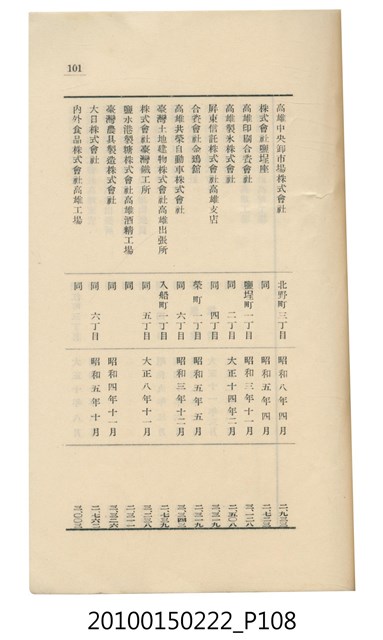 101
高雄中央卸市場株式會社 北野町三丁目 昭和八年四月
株式會社鹽埕座 同 昭和五年四月
高雄印刷合資會社 鹽埕町一丁目 昭和三年十一月
高雄製氷株式會社 同 二丁目 大正十四年二月
屏東信託株式會社高雄支店 同 四丁目
合資會社金鵄館 榮町一丁目 昭和五年五月
高雄共榮自動車株式會社 同 六丁目 昭和三年十二月
臺灣土地建物株式會社高雄出張所 入船町一丁目
株式會社臺灣鐵工所 同 五丁目 大正八年十一月
鹽水港製糖株式會社高雄酒精工場 同
臺灣農具製造株式會社 同 昭和四年十一月
大日株式會社 同 六丁目 昭和五年十一月
內外食品株式會社高雄工場 同
20100150222_P108